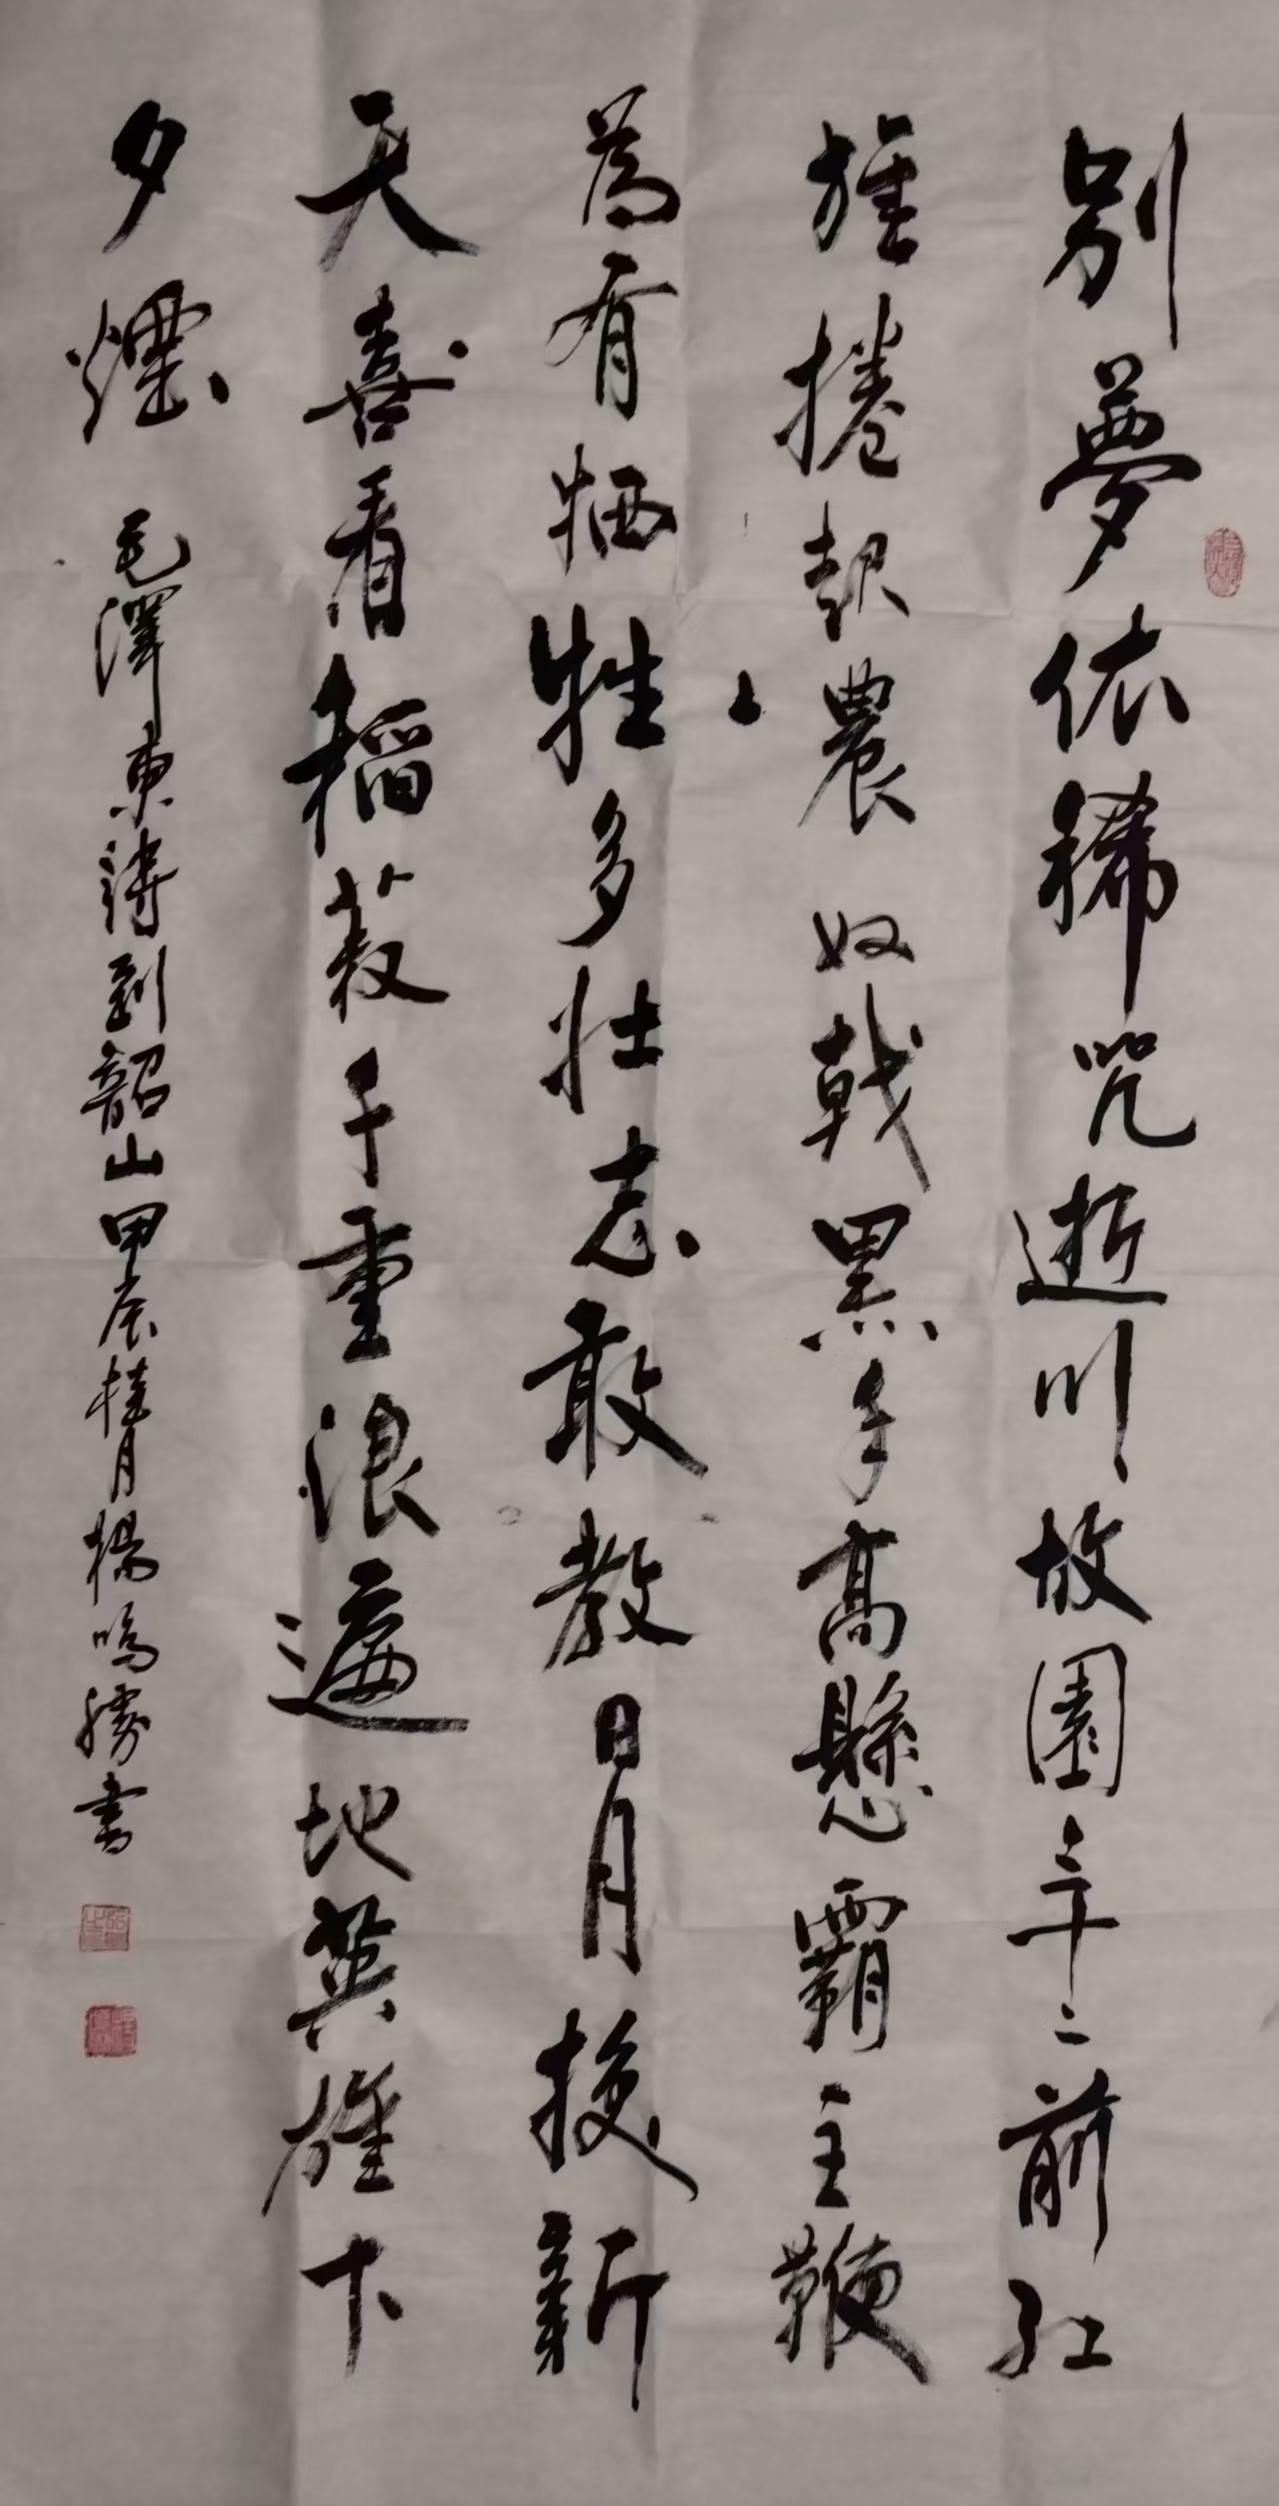 別夢依稀咒逝川故園三十二前紅
旌捲起農奴戟黑手高懸霸主鞭
為有牺牲多壮志敢教日月换新
天喜看稻菽千重浪遍地英雄下
夕煙
毛澤東詩到韶山甲辰桂月楊鳴勝書